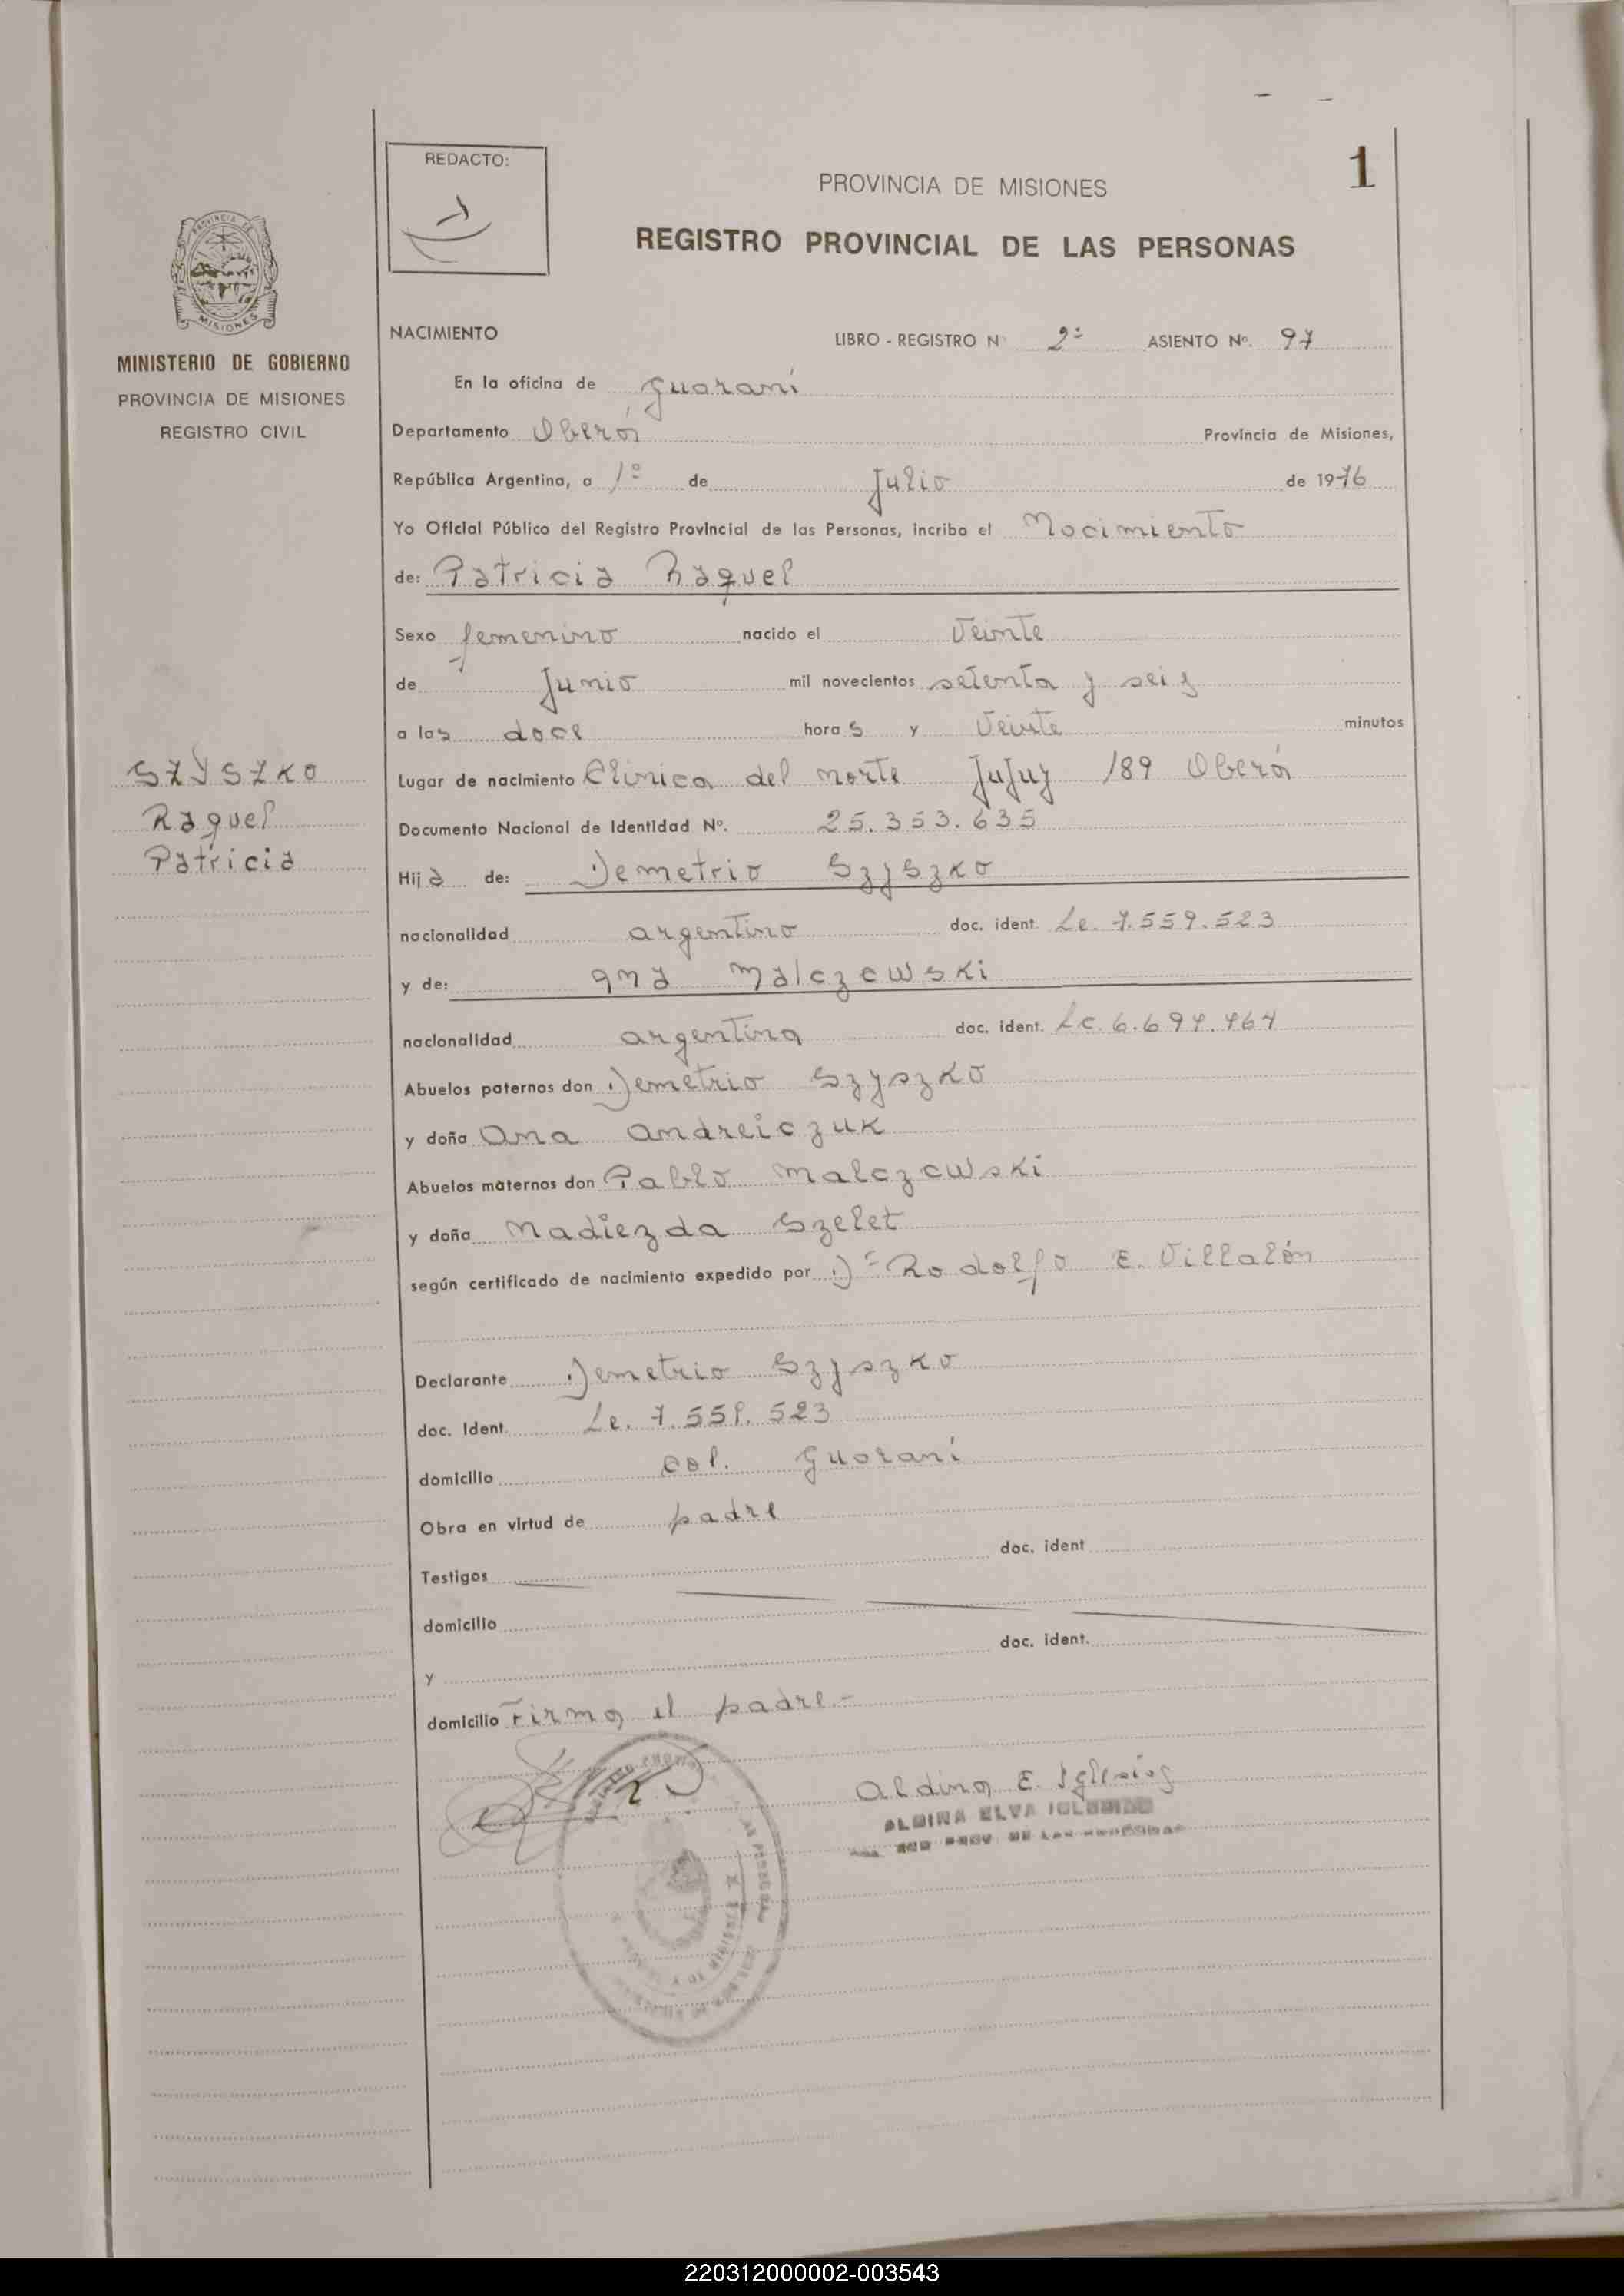 REDACTO:
1
PROVINCIA DE MISIONES
REGISTRO PROVINCIAL DE LAS PERSONAS
MISIONES
MINISTERIO DE GOBIERNO
PROVINCIA DE MISIONES
REGISTRO CIVIL
NACIMIENTO LIBRO - REGISTRO N 2º ASIENTO Nº. 97
En la oficina de Guaraní
Departamento Oberá Provincia de Misiones,
República Argentina, a 1º de Julio de 1976
Yo Oficial Público del Registro Provincial de las Personas, incribo el Nacimiento
de: Patricia Raquel
Sexo femenino nacido el Veinte
de Junio mil novecientos setenta y seis
a las doce horas y Veinte minutos
SZYSZKO
Raquel
Patricia
Lugar de nacimiento Clinica del norte Jujuy 189 Oberá
Documento Nacional de Identidad Nº. 25.353.635
Hija de: Demetrio Szyszko
nacionalidad argentino doc. ident. Le. 7.559.523
y de: Ana Malczewski
nacionalidad argentina doc. ident. Lc. 6.697.764
Abuelos paternos don Demetrio Szyszko
y doña Ana Andreiczuk
Abuelos maternos don Pablo Malczewski
y doña Nadiezda Szelet
según certificado de nacimiento expedido por Dr Rodolfo E. Villalón
Declarante Demetrio Szyszko
doc. Ident. Le. 7.559.523
domicilio Col. Guaraní
Obra en virtud de padre
Testigos doc. ident
domicilio
y doc. ident.
domicilio Firma el padre.-
Aldina E. Iglesias
ELVA
220312000002-003543